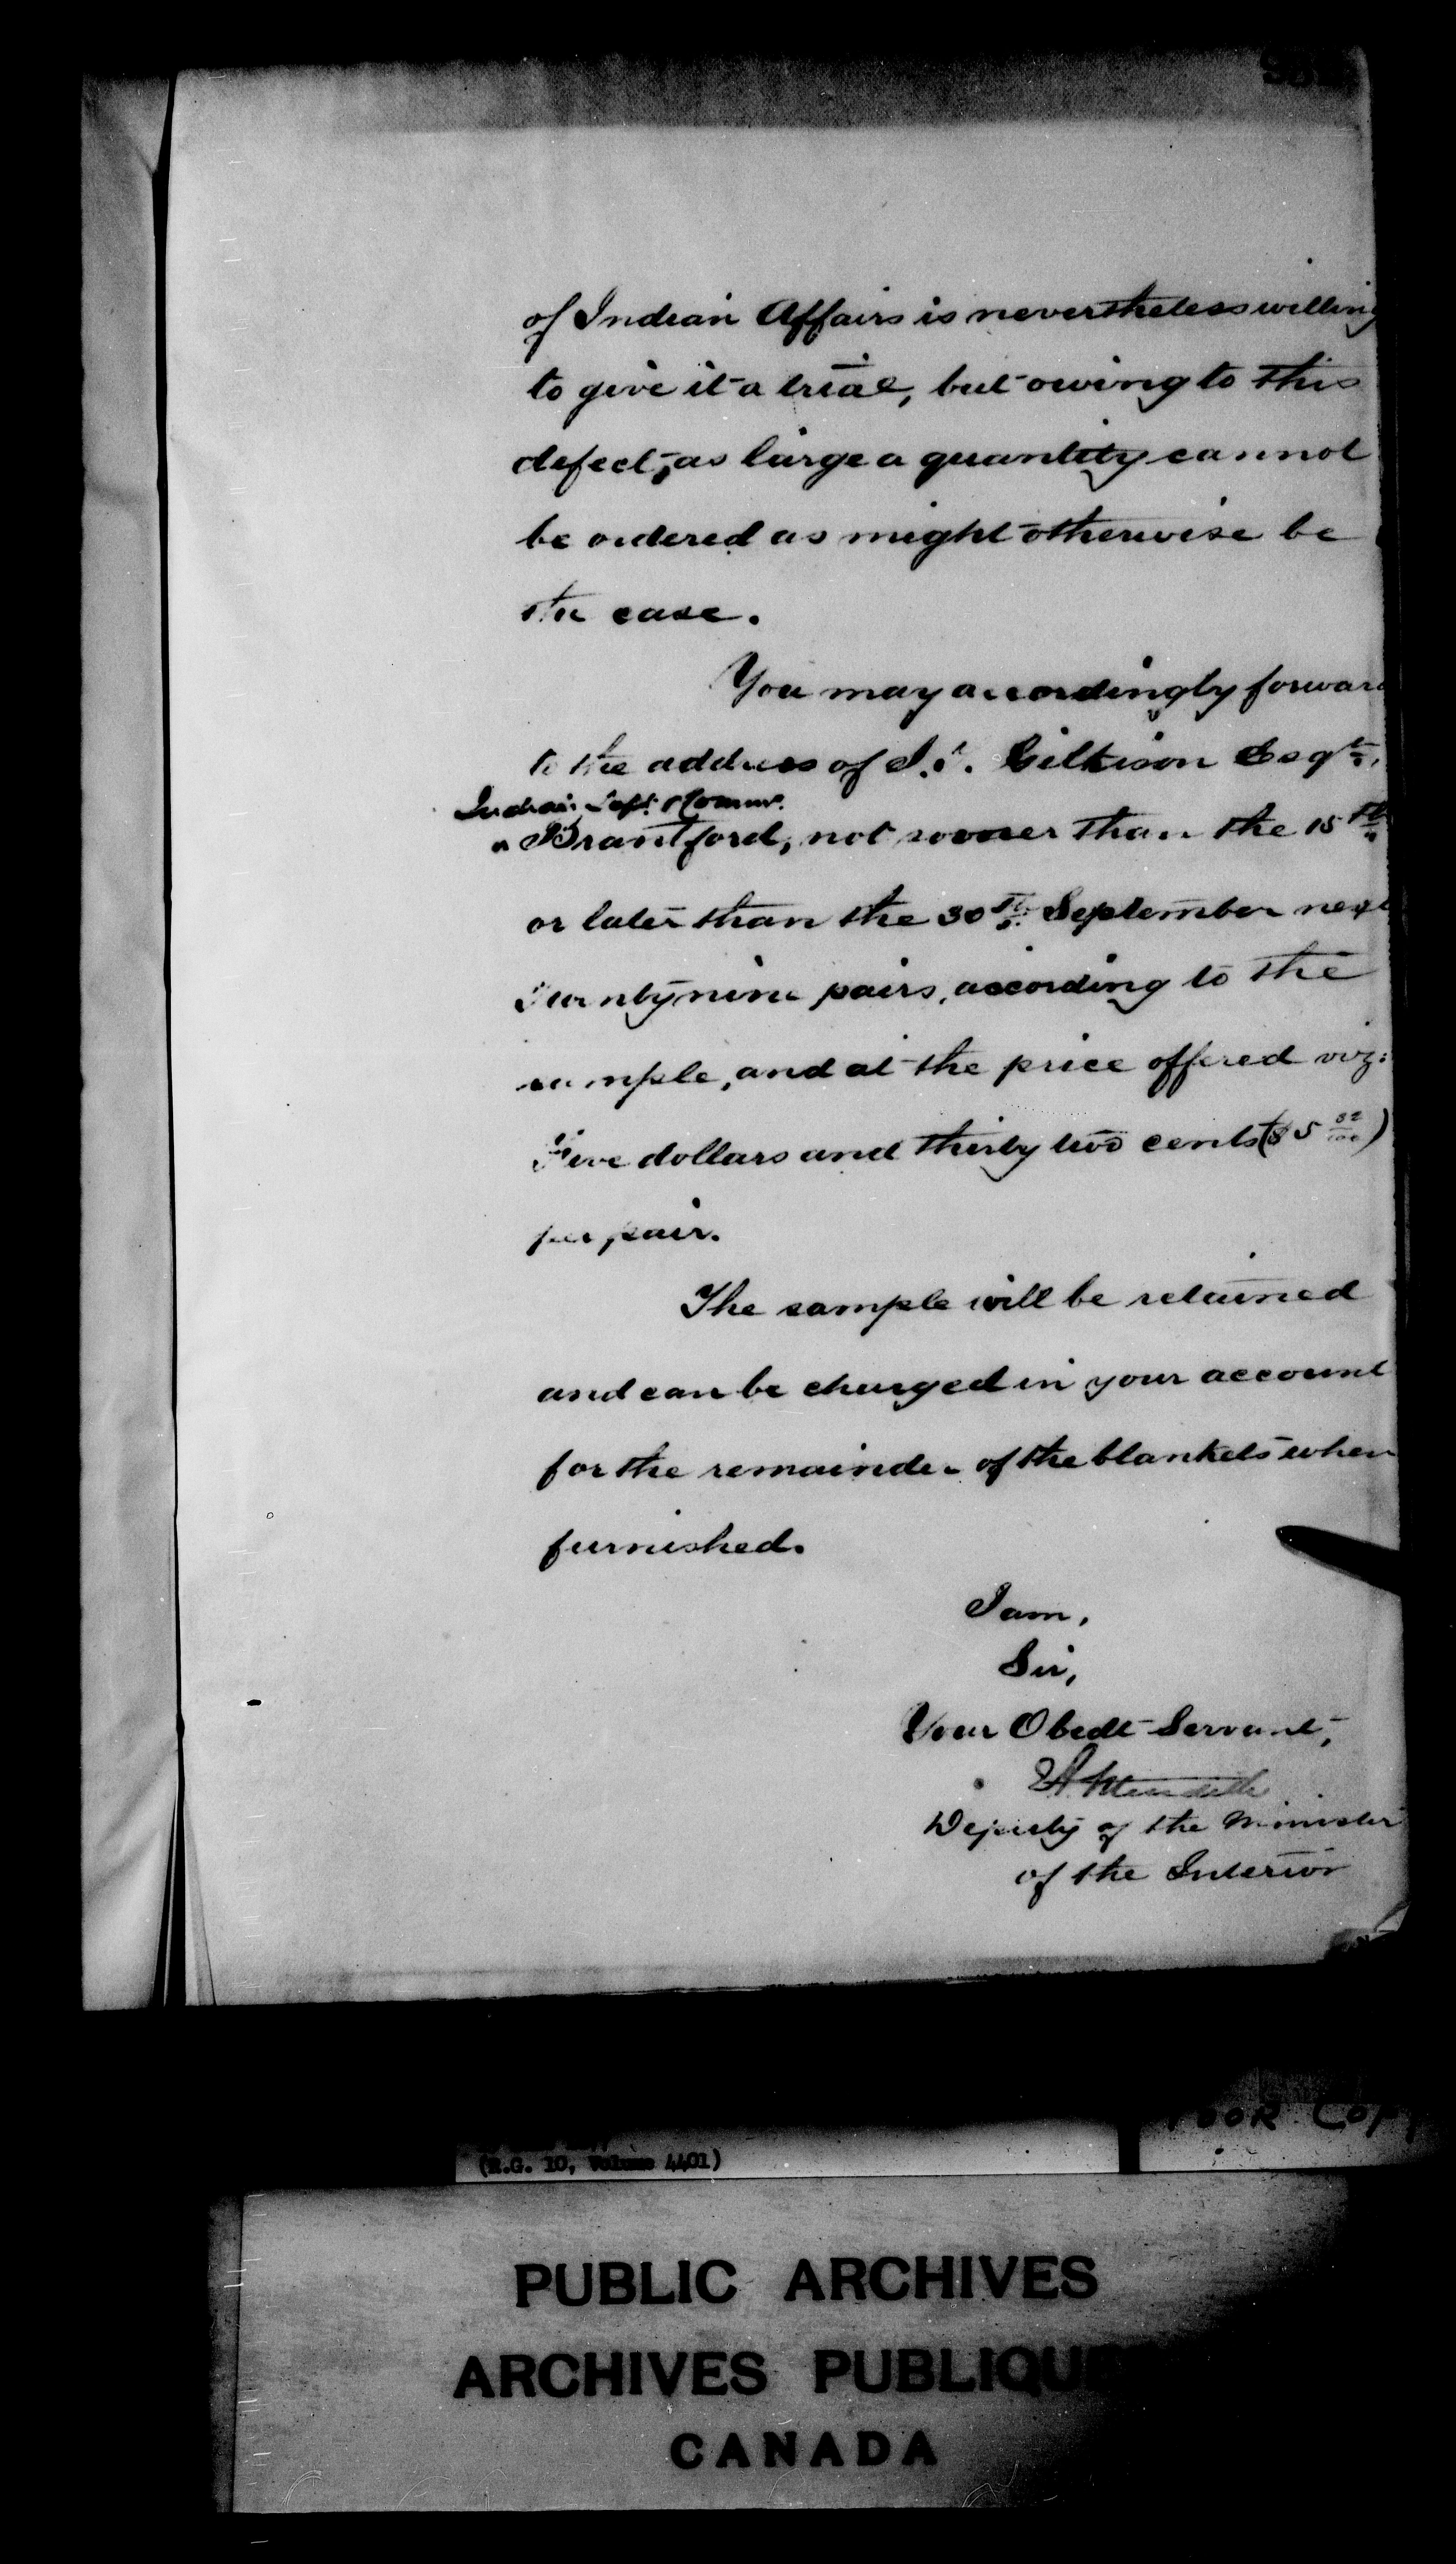 of Indian Affairs is nevertheless willing
to give it a trial, but owing to this
defect, as large a quantity cannot
be ordered as might otherwise be
the case.
You may accordingly forward
to the address of J. T. Gilkison Esqre,
Indian Supt. & Commr.
Brantford, not sooner than the 15th
or later than the 30th September next
Twenty nine pairs, according to the
sample, and at the price offered viz:
Five dollars and thirty two cents ($5 32/100)
per pair.
The sample will be retained
and can be charged in your account
for the remainder of the blankets when
furnished.
I am,
Sir,
Your Obedt Servant,
EA Meredith
Deputy of the Minister
of the Interior
POOR COPY
(R.G. 10, Volume 4401)
PUBLIC ARCHIVES
ARCHIVES PUBLIQUE
CANADA